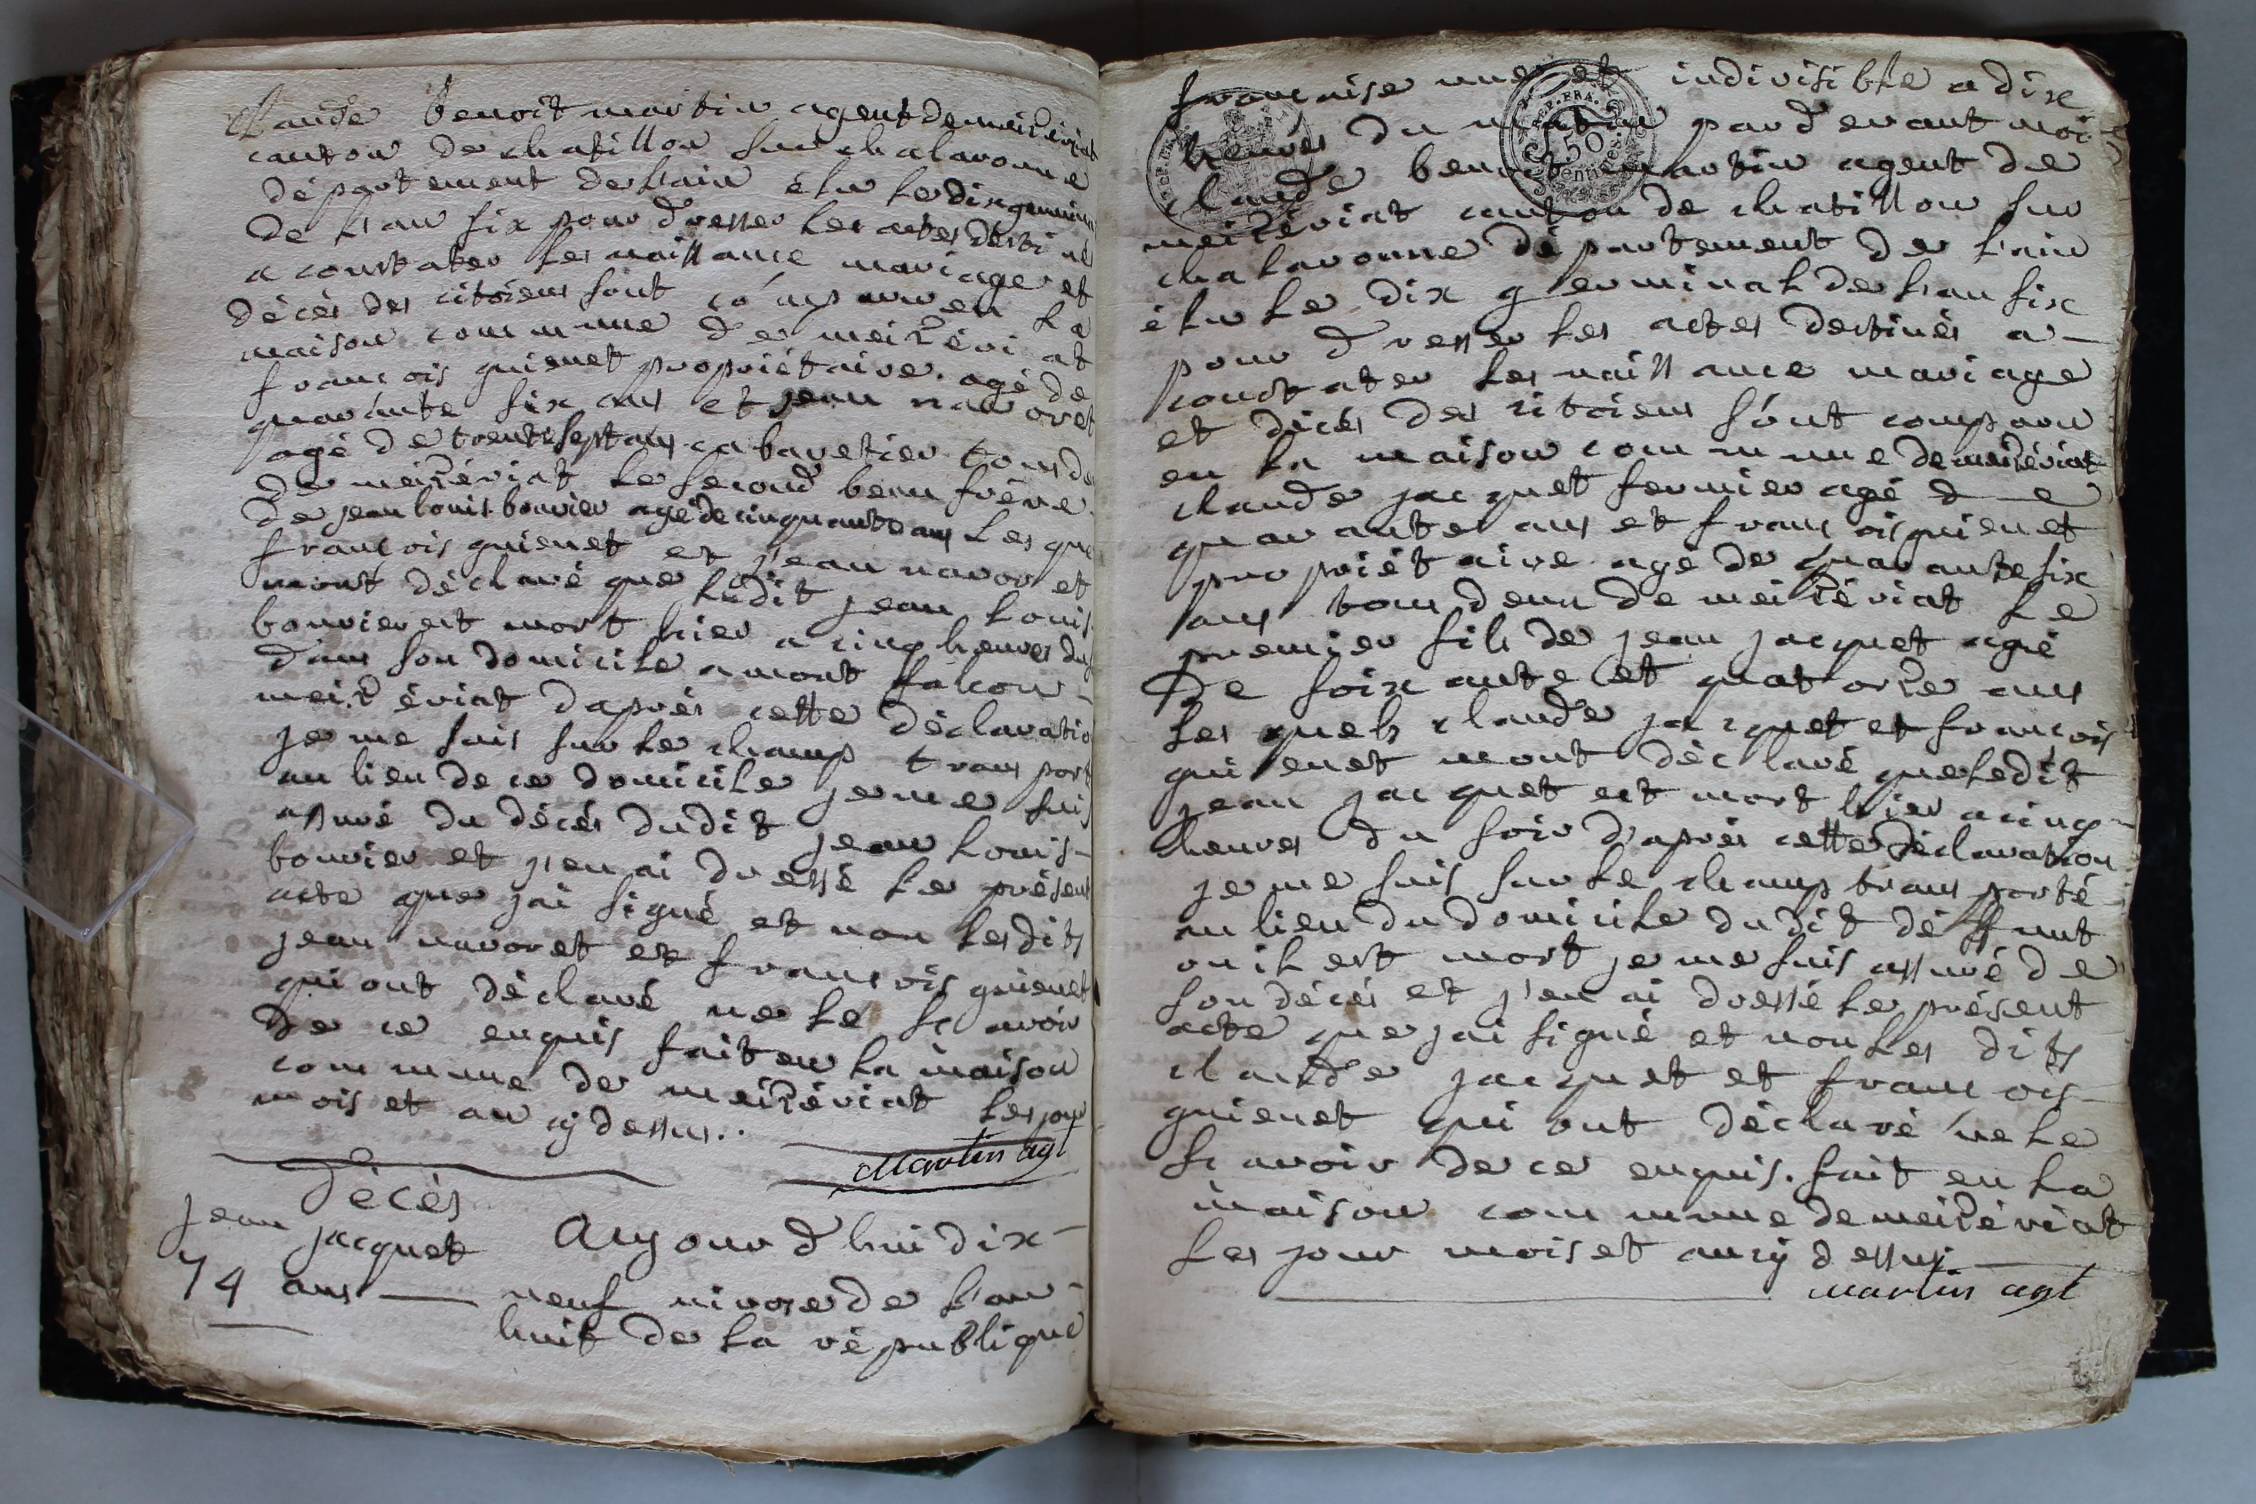 Claude benoit martin agent de meizériat
canton de chatillon sur chalaronne
département de l'ain élu le dix germinal
de l'an six pour dresser les actes destinés
a constater les naissance mariage et
décès des citoiens sont comparu en la
maison commune de meizériat
françois guienet propriétaire agé de
quarante six ans et jean navoret
agé de trente sept ans cabaretier tous de
de meizériat le second beau frère
de jean louis bouvier agé de cinquante ans les que
françois guienet et jean navoret
mont déclaré que ledit jean louis
bouvier est mort hier a cinq heures du
dans son domicile a mont falcon
meizériat daprès cette déclaratio
je me suis sur le champ transport
au lieu de ce domicile je me suis
assuré du décés dudit jean louis
bouvier et j'en ai dressé le présent
acte que jai signé et non les dits
jean navoret et françois guienet
qui ont déclaré ne le sçavoir
de ce enquis fait en la maison
commune de meizériat les jour
mois et an cy dessus..
Martin agt
Décés
jean jacquet
74 ans
Aujourd'hui dix
neuf nivose de l'an
huit de la république
française une et indivisible a dix
heures du matin pardevant moi
REP. FRA.
50
Centimes
claude benoit martin agent de
meizériat canton de chatillon sur
chalaronne département de l'ain
élu le dix germinal de l'an six
pour dresser les actes destinés a
constater les naissance mariage
et décés des citoiens sont comparu
en la maison commune de meizériat
claude jacquet fermier agé de
quarante ans et françois guienet
propriétaire agé de quarante six
ans tous deux de meizériat le
premier fils de jean jacquet agé
De soixante et quatorze ans
les quels claude jacquet et françois
guienet mont déclaré que ledit
jean jacquet est mort hier a cinq
heures du soir daprès cette déclaration
je me suis sur le champ transporté
au lieu du domicile dudit déffunt
ou il est mort je me suis assuré de
son décés et j'en ai dressé le présent
acte que jai signé et non les dits
claude jacquet et françois
guienet qui ont déclaré ne le
sçavoir de ce enquis. fait en la
maison commune de meizériat
les jour mois et an cy dessus
martin agt